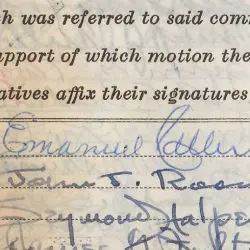 ch was referred to said com
upport of which motion the
atives affix their signatures
Emanuel Celler
John J. Roo
Seymour Halper